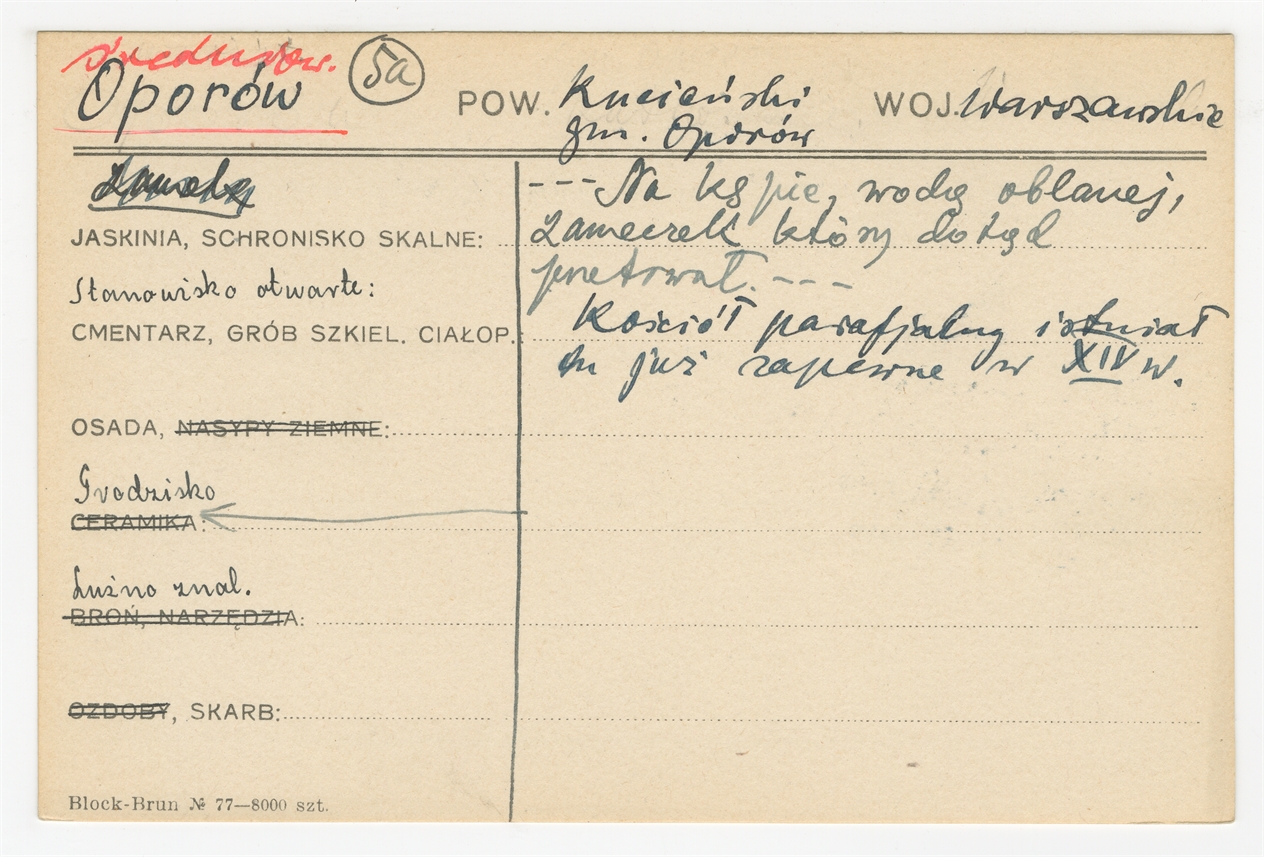 średniow.
Oporów 5a POW. Kucieński WOJ. Warszawskie
gm. Oporów
JASKINIA, SCHRONISKO SKALNE:
Stanowisko otwarte:
CMENTARZ, GRÓB SZKIEL. CIAŁOP.:
OSADA, NASYPY ZIEMNE:
Grodzisko
CERAMIKA:
Luźno znal.
BROŃ, NARZĘDZIA:
OZDOBY, SKARB:
Block-Brun № 77—8000 szt.
--- Na kępie, wodą oblanej,
zameczek który dotąd
przetrwał. ---
Kościół parafjalny istniał
tu już zapewne w XIV w.